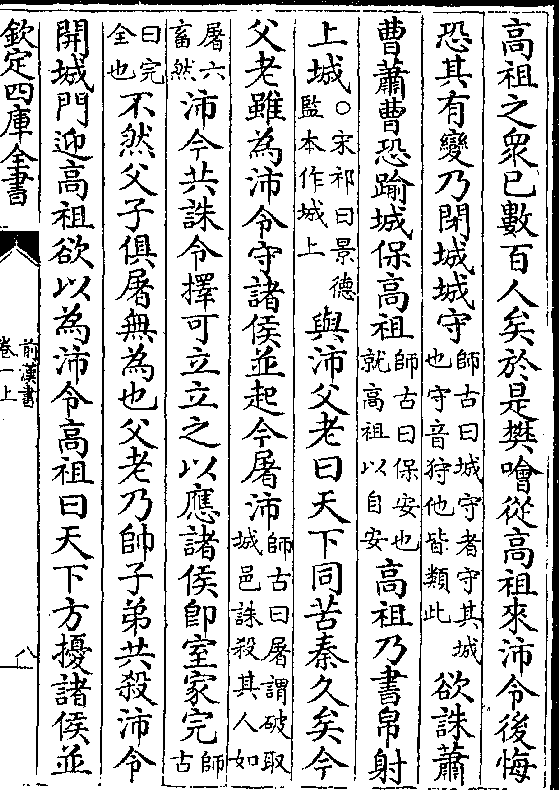 高祖之衆已數百人矣於是樊噲從高祖來沛令後悔
恐其有變乃閉城城守師古曰城守者守其城也守音狩他皆類此欲誅蕭
曹蕭曹恐踰城保高祖師古曰保安也就高祖以自安高祖乃書帛射
上城○宋祁曰景德監本作城上與沛父老曰天下同苦秦久矣今
父老雖為沛令守諸侯並起今屠沛師古曰屠謂破取城邑誅殺其人如
屠六畜然沛今共誅令擇可立立之以應諸侯即室家完師古
曰完全也不然父子俱屠無為也父老乃帥子弟共殺沛令
開城門迎高祖欲以為沛令高祖曰天下方擾諸侯並
欽定四庫全書
前漢書
卷一上
八